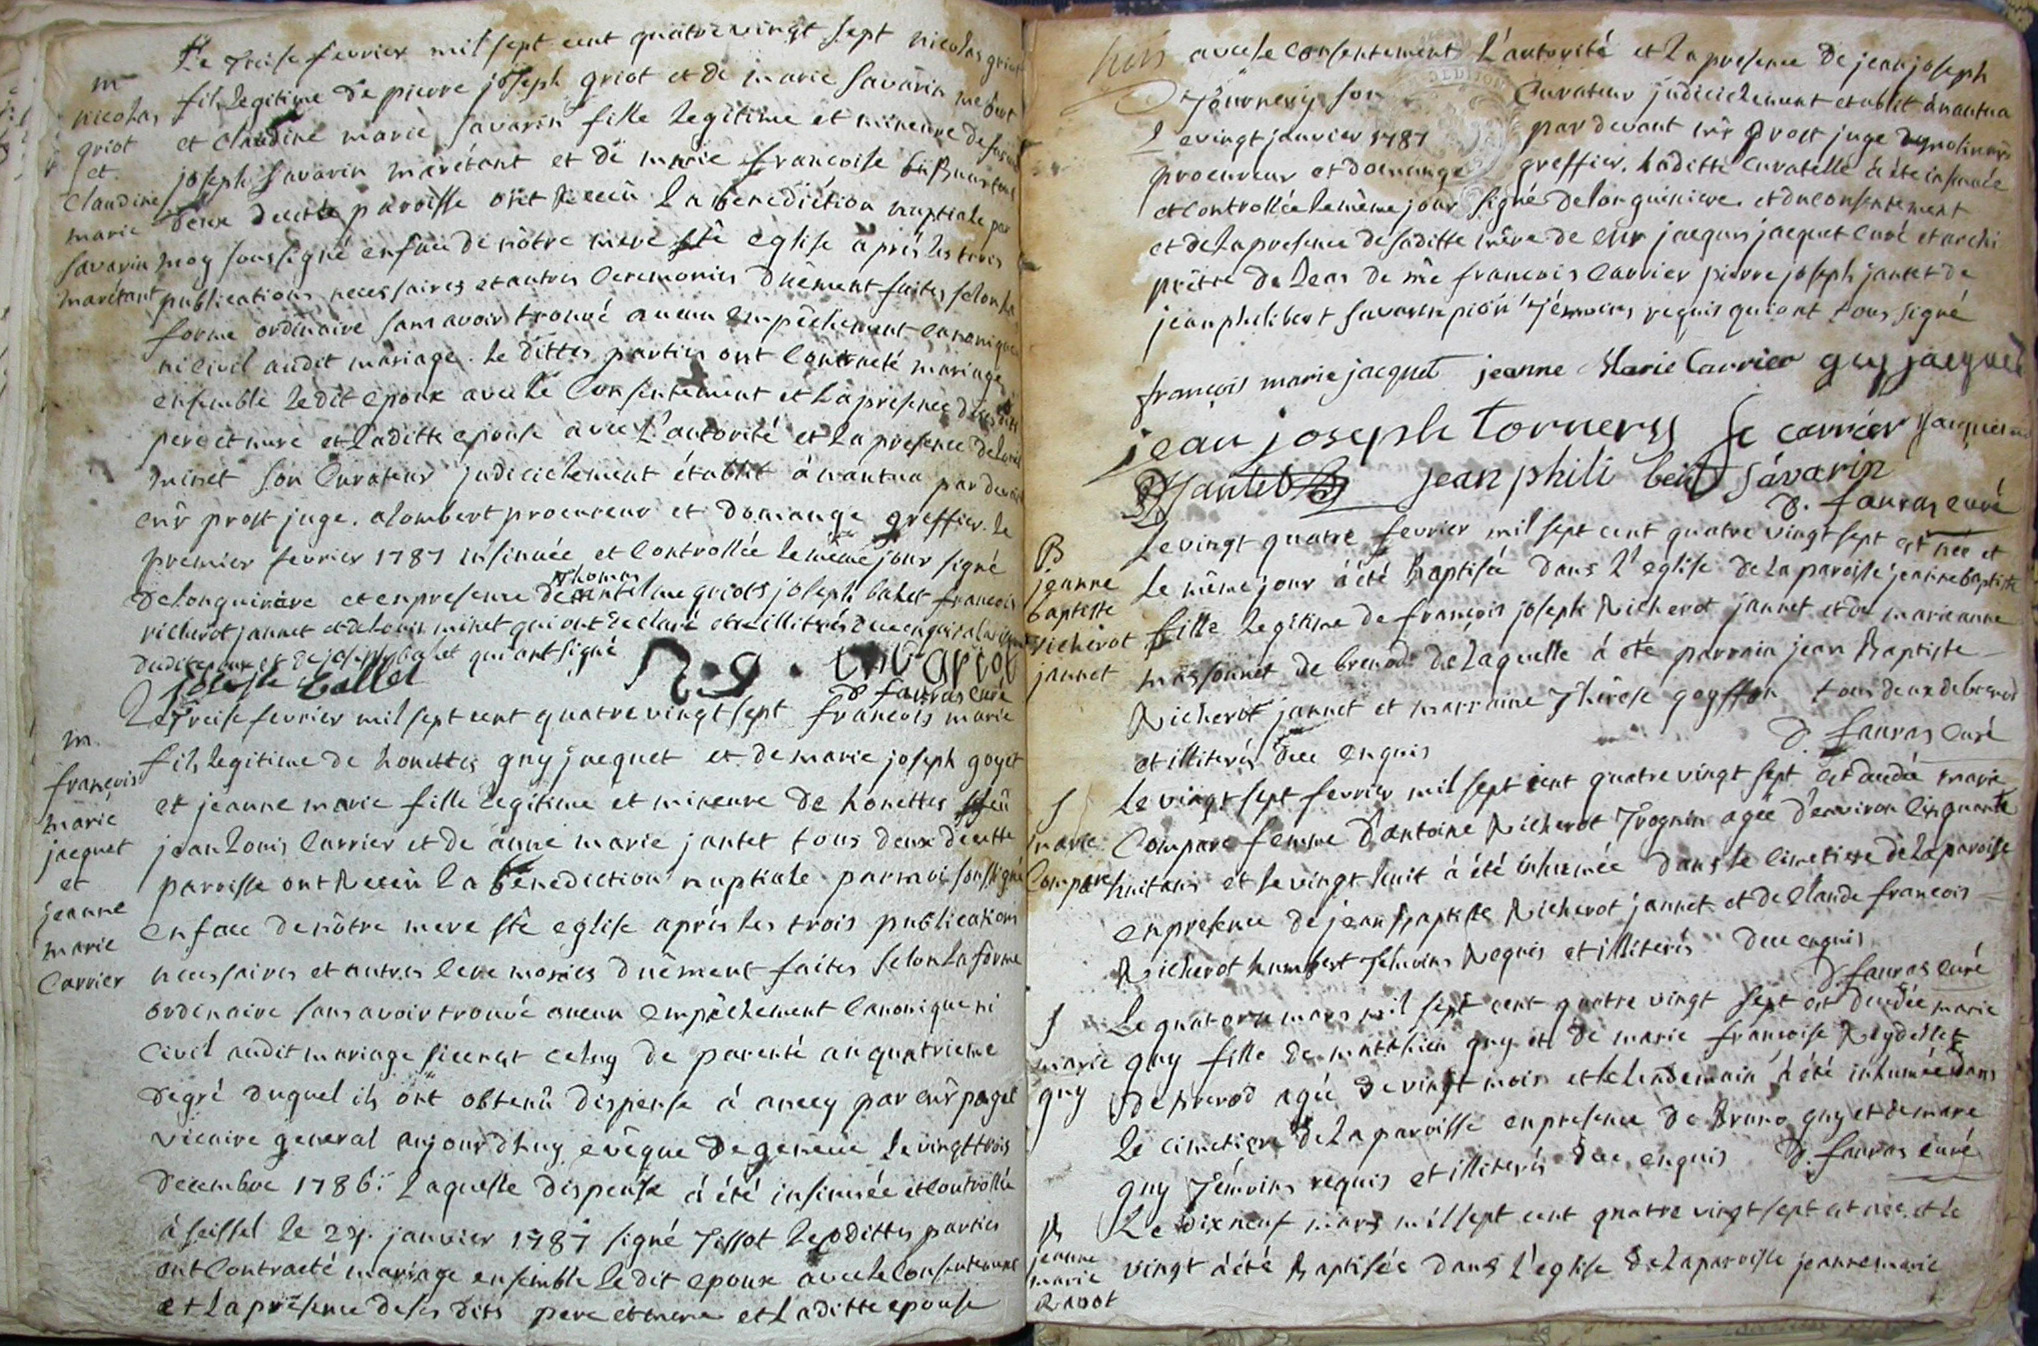 Le treise fevrier mil sept cent quatre vingt sept nicolas griot
fils legitime de pierre joseph griot et de marie savarin
et claudine marie savarin fille legitime et mineure de
joseph savarin marétant et de marie francoise
deux de cette paroisse ont receû la bénédiction nuptiale par
moy soussigné en face de nôtre mere ste eglise aprés les trois
publications necessaires et autres ceremonies duêment faites selon la
forme ordinaire sans avoir trouvé aucun empêchement canonique
ni civil audit mariage. le dittes parties ont contracté mariage
ensemble ledit epoux avec le consentement et la présence de ses dits
pere et mere et laditte epouse avec l'autorité et la presence de louis
minet son curateur judicielement établit à nantua par devant
mr prost juge. alombert procureur et domange greffier. le
premier fevrier 1787 insinuée et controllée le même jour signé
delonguiniere et en presence de thomas griot joseph balet francois
richerot jannet et de louis minet qui ont declaré etre illitérés de ce enquis
dudit epoux et de joseph balet qui ont signé
joseph ballet
N. g. savarin
D. fauras curé
m
nicolas
griot
et
claudine
marie
savarin
marétant
Le treise fevrier mil sept cent quatre vingt sept francois marie
fils legitime de honettes guy jacquet et de marie joseph goyet
et jeanne marie fille legitime et mineure de honettes feû
jean louis carrier et de anne marie jantet tous deux de cette
paroisse ont receû la bénédiction nuptiale par moi soussigné
en face de nôtre mere ste eglise aprés les trois publications
necessaires et autres ceremonies duêment faites selon la forme
ordinaire sans avoir trouvé aucun empêchement canonique ni
civil audit mariage si ce n'est celuy de parenté au quatrieme
degré duquel ils ont obtenû dispense à anecy par mr paget
vicaire general aujourdhuy evêque de geneve le vingt trois
decembre 1786. laquelle dispense à été insinuée et controllée
à seissel le 27. janvier 1787 signé tissot lesdittes parties
ont contracté mariage ensemble ledit epoux avec le consentement
et la présence de ses dits pere et mere et laditte epouse
m.
françois
marie
jacquet
et
jeanne
marie
carrier
avec le consentement l'autorité et la presence de jean joseph
tournery son curateur judicielement etablit à nantua
le vingt janvier 1787 par devant mr prost juge
procureur et domange greffier. laditte curatelle à été insinuée
et controllée le même jour signé delonguiniere et du consentement
et de la presence de saditte mère de mr jacques jacquet curé et archi
prêtre de de me francois carrier pierre joseph jantet de
jean philibert savarin pion témoins requis qui ont tous signé
françois marie jacquet jeanne Marie Carrier guy jacquet
jean joseph tornery fc carrier jacquet
Pj jantet jean phili bert savarin
D. fauras curé
Le vingt quatre fevrier mil sept cent quatre vingt sept est née et
le même jour à été baptisée dans l'eglise de la paroisse jeanne baptiste
fille legitime de françois joseph Richerot jannet et de marie anne
massonnet de brenod de laquelle à été parrain jean Baptiste
Richerot jannet et marraine thérèse goyffon tous deux de brenod
et illiterés de ce enquis
D. fauras curé
B
jeanne
baptiste
richerot
jannet
Le vingt sept fevrier mil sept cent quatre vingt sept est decedée marie
Compare femme d'antoine Richerot trognin agée d'environ cinquante
huit ans et le vingt huit à été inhumée dans le cimetiere de la paroisse
en presence de jean Baptiste Richerot jannet et de claude francois
Richerot humbert témoins Requis et illiterés de ce enquis
D. fauras curé
S
marie
Compare
Le quatorze mars mil sept cent quatre vingt sept est decedée marie
guy fille de matthieu guy et de marie francoise Reydellet
de brenod agée de vingt mois et le lendemain à été inhumée dans
le cimetiere de la paroisse en presence de Bruno guy et de marie
guy témoins requis et illiterés de ce enquis D. fauras curé
S
marie
guy
Le dix neuf mars mil sept cent quatre vingt sept est née et le
vingt à été Baptisée dans l'eglise de la paroisse jeanne marie
B
jeanne
marie
Ravot